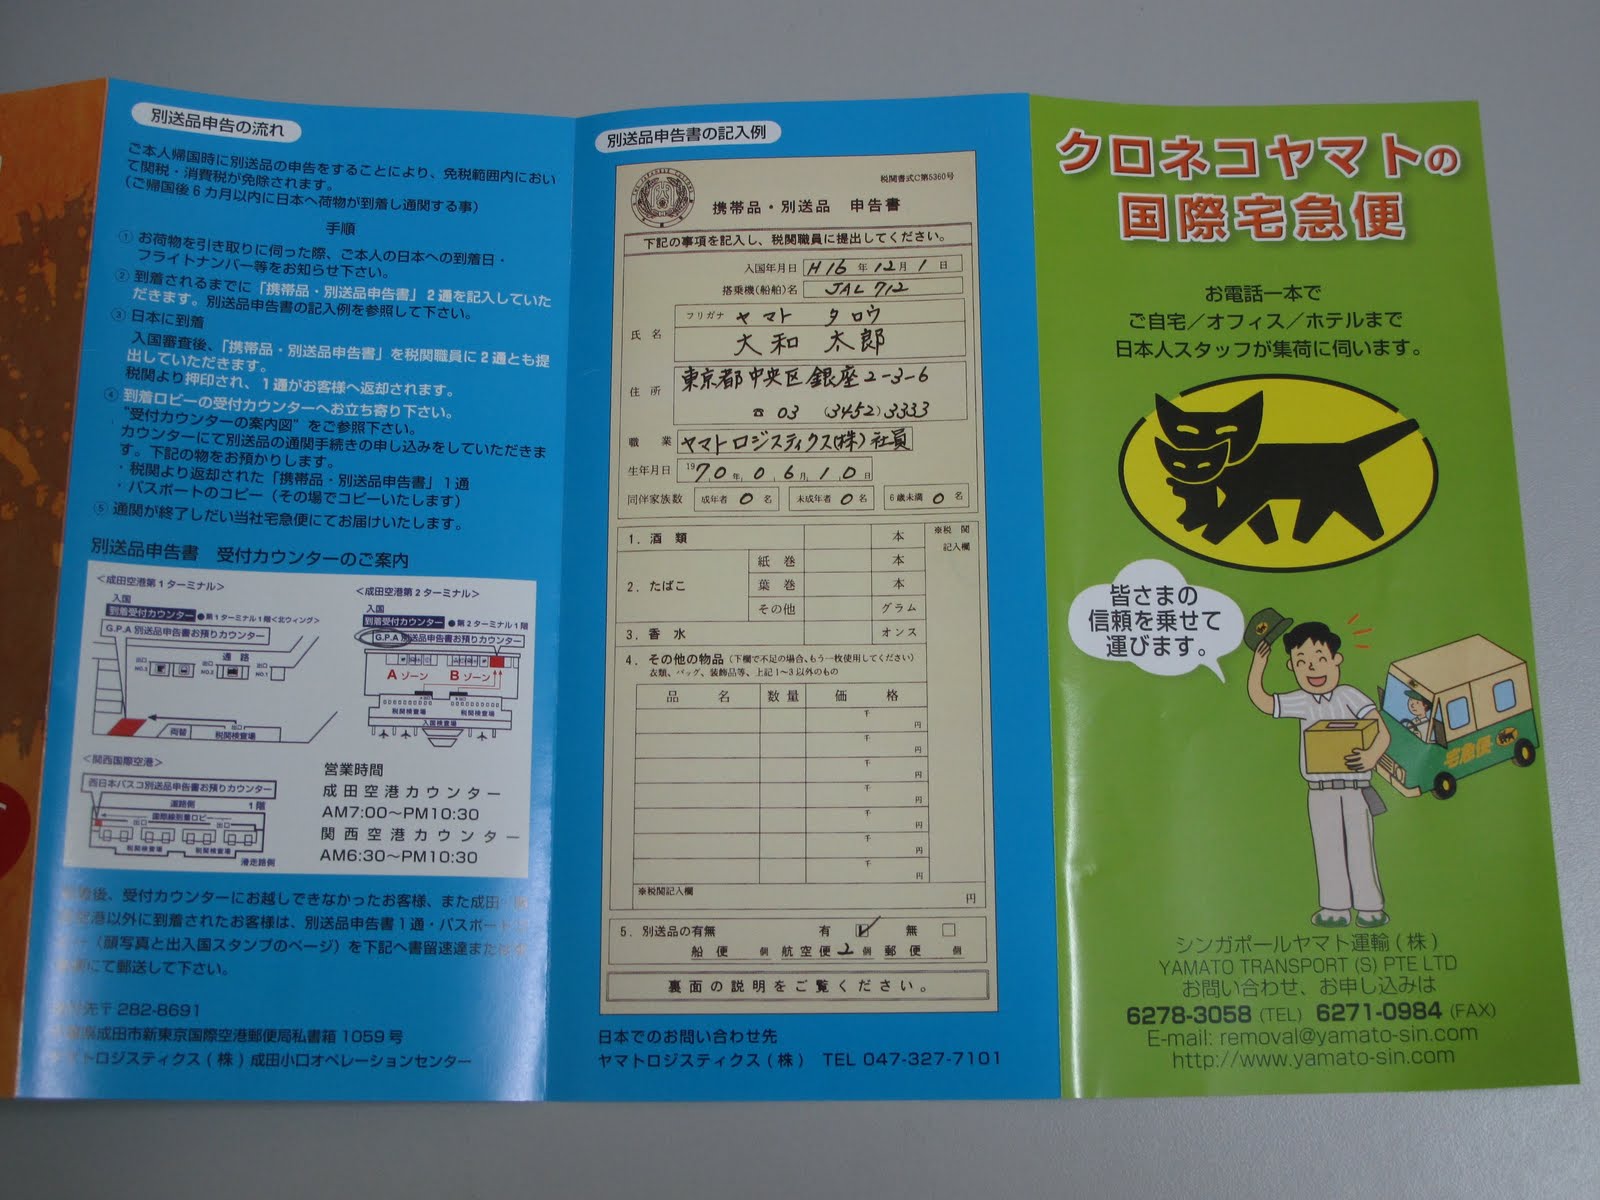 別送品申告の流れ
ご本人帰国時に別送品の申告をすることにより、免税範囲内におい
て関税・消費税が免除されます。
(ご帰国後6カ月以内に日本へ荷物が到着し通関する事)
手順
① お荷物を引き取りに伺った際、ご本人の日本への到着日・
フライトナンバー等をお知らせ下さい。
② 到着されるまでに「携帯品・別送品申告書」2通を記入していた
だきます。別送品申告書の記入例を参照して下さい。
③ 日本に到着
入国審査後、「携帯品・別送品申告書」を税関職員に2通とも提
出していただきます。
税関より押印され、1通がお客様へ返却されます。
④ 到着ロビーの受付カウンターへお立ち寄り下さい。
"受付カウンターの案内図"をご参照下さい。
カウンターにて別送品の通関手続きの申し込みをしていただきま
す。下記の物をお預かりします。
・税関より返却された「携帯品・別送品申告書」1通
・パスポートのコピー(その場でコピーいたします)
⑤ 通関が終了しだい当社宅急便にてお届けいたします。
別送品申告書 受付カウンターのご案内
<成田空港第1ターミナル>
入国
到着受付カウンター ●第1ターミナル1階<北ウィング>
G.P.A 別送品申告書お預りカウンター
通路
出口
NO.3
出口
NO.2
出口
NO.1
出口
両替
税関検査場
<成田空港第2ターミナル>
入国
到着受付カウンター ●第2ターミナル1階
G.P.A 別送品申告書お預りカウンター
Aゾーン Bゾーン
税関検査場 税関検査場
入国検査場
<関西国際空港>
西日本パスコ別送品申告書お預りカウンター
道路側 1階
国際線到着ロビー
出口 出口
税関検査場 税関検査場
滑走路側
営業時間
成田空港カウンター
AM7:00〜PM10:30
関西空港カウンター
AM6:30〜PM10:30
後、受付カウンターにお越しできなかったお客様、また成田・
空港以外に到着されたお客様は、別送品申告書1通・パスポート
(顔写真と出入国スタンプのページ)を下記へ書留速達または
にて郵送して下さい。
先〒282-8691
県成田市新東京国際空港郵便局私書箱1059号
ヤマトロジスティクス(株)成田小口オペレーションセンター
別送品申告書の記入例
税関書式C第5360号
携帯品・別送品 申告書
下記の事項を記入し、税関職員に提出してください。
入国年月日 H16年12月1日
搭乗機(船舶)名 JAL 712
フリガナ ヤマト タロウ
氏名 大和 太郎
住所 東京都中央区銀座2-3-6
☎ 03 (3452) 3333
職業 ヤマトロジスティクス(株)社員
生年月日 1970年06月10日
同伴家族数 成年者 0 名 未成年者 0 名 6歳未満 0 名
1. 酒類 本
※税関
記入欄
2. たばこ 紙巻 本
葉巻 本
その他 グラム
3. 香水 オンス
4. その他の物品(下欄で不足の場合、もう一枚使用してください)
衣類、バッグ、装飾品等、上記1〜3以外のもの
品名 数量 価格
千 円
千 円
千 円
千 円
千 円
千 円
千 円
※税関記入欄
円
5. 別送品の有無 有 ☑ 無 □
船便 個 航空便 2 個 郵便 個
裏面の説明をご覧ください。
日本でのお問い合わせ先
ヤマトロジスティクス(株) TEL 047-327-7101
クロネコヤマトの
国際宅急便
お電話一本で
ご自宅/オフィス/ホテルまで
日本人スタッフが集荷に伺います。
皆さまの
信頼を乗せて
運びます。
宅急便
シンガポールヤマト運輸(株)
YAMATO TRANSPORT (S) PTE LTD
お問い合わせ、お申し込みは
6278-3058 (TEL) 6271-0984 (FAX)
E-mail: removal@yamato-sin.com
http://www.yamato-sin.com